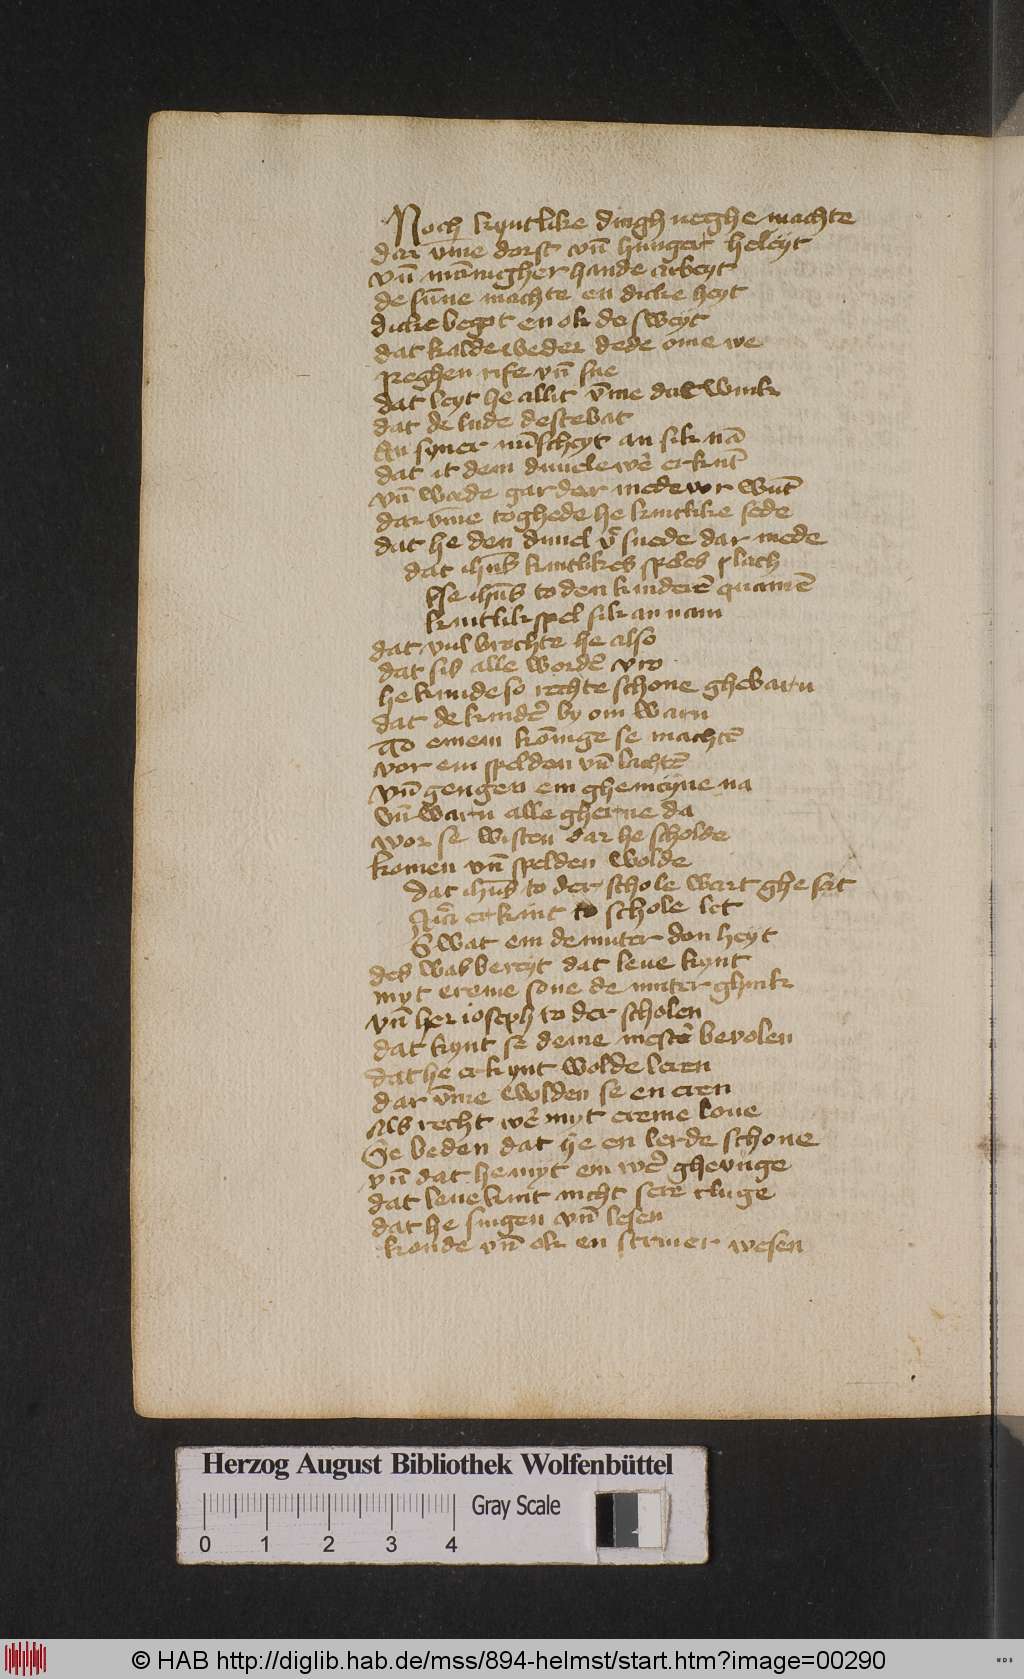 Noch kyntlike dingh neghe machte
dar vm̄e dorst vn̄ hunger he leyt
vn̄ mānigher hande arbeyt
de sūne machte en dicke heyt
dicke begot en ok de sweyt
dat kalde weder dede ome we
Reghen rife vn̄ sne
dat leyt he allit vm̄e dat
dat de lude deste bat
An syner mīscheyt an sik nā
dat it dem duuele wē erkāt
vn̄ worde gar dar mede vor wūt
dar vm̄e toghede he kintlike sede
dat he den duuel vsnede dar mede
dat ihūs kintlikes speles plach
Ise ihūs to den kinderē quamē
kintlik spel sik an nam
dat vul brochte he also
dat sik alle wordē vro
he kunde so rechte schone ghebarn
dat de kindē by om warn
To einem kōnige se machtē
vor em spelden vn̄ lachtē
vn̄ gengen em ghemeyne na
vn̄ warn alle gherne da
wor se wisten dar he scholde
komen vn̄ spelden wolde
dat ihūs to der schole wart ghe set
er kint to schole let
Swat em de muter don heyt
des was bereyt dat leue kynt
myt ereme sone de muter ghink
vn̄ her ioseph to der scholen
dat kynt se deme mestē bevolen
dat he er kynt wolde leren
dar vm̄e wolden se en eren
Als recht wē myt ereme loue
Se beden dat he en lerde schone
vn̄ dat he myt em wē ghevūge
dat leue kint nicht sere cluge
dat he singen vn̄ lesen
konde vn̄ ok en scriuer wesen
Herzog August Bibliothek Wolfenbüttel
Gray Scale
0 1 2 3 4
© HAB http://diglib.hab.de/mss/894-helmst/start.htm?image=00290